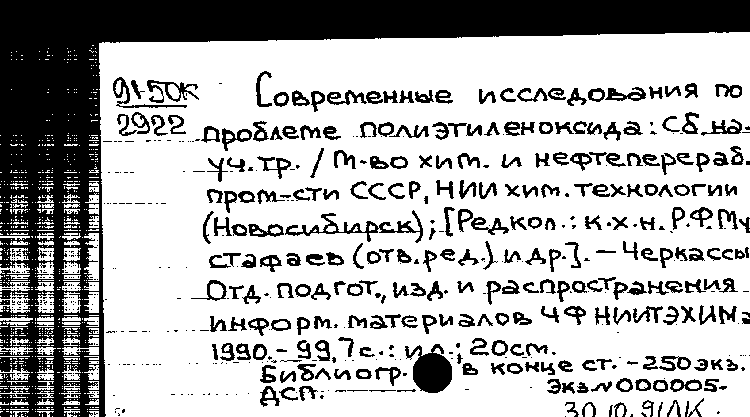 91-5ОК
2922
Современные исследования по
проблеме полиэтиленоксида: Сб. на-
уч. тр. / М-во хим. и нефтеперераб.
пром-сти СССР, НИИ хим. технологии
(Новосибирск); [Редкол.: к.х.н. Р.Ф. Му
стафаев (отв. ред.) и др.]. – Черкассы
Отд. подгот., изд. и распространения
информ. материалов ЧФ НИИТЭХИМа
1990. – 99,7 с.: ил.; 20 см.
Библиогр. в конце ст. – 250 экз.
ДСП. Экз. N 000005.
30.10.91ЛК.